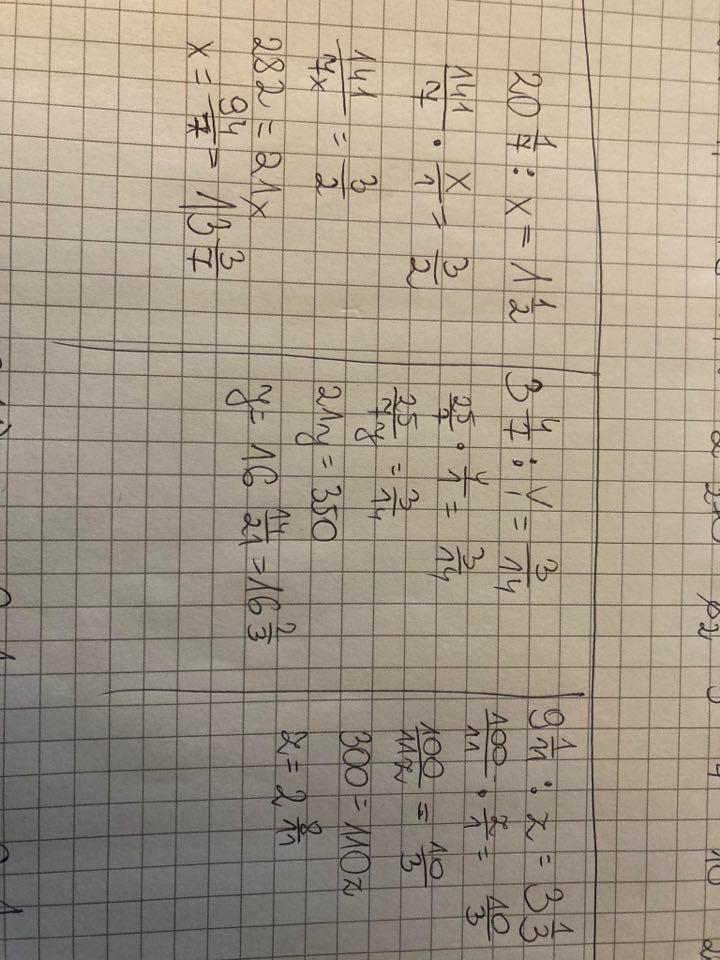 20 1/7 : x = 1 1/2
141/7 · x/1 = 3/2
141/7x = 3/2
282 = 21x
x = 94/7 = 13 3/7
3 4/7 : y = 3/14
25/7 · y/1 = 3/14
25/7y = 3/14
21y = 350
y = 16 14/21 = 16 2/3
9 1/11 : z = 3 1/3
100/11 · z/1 = 10/3
100/11z = 10/3
300 = 110z
z = 2 8/11